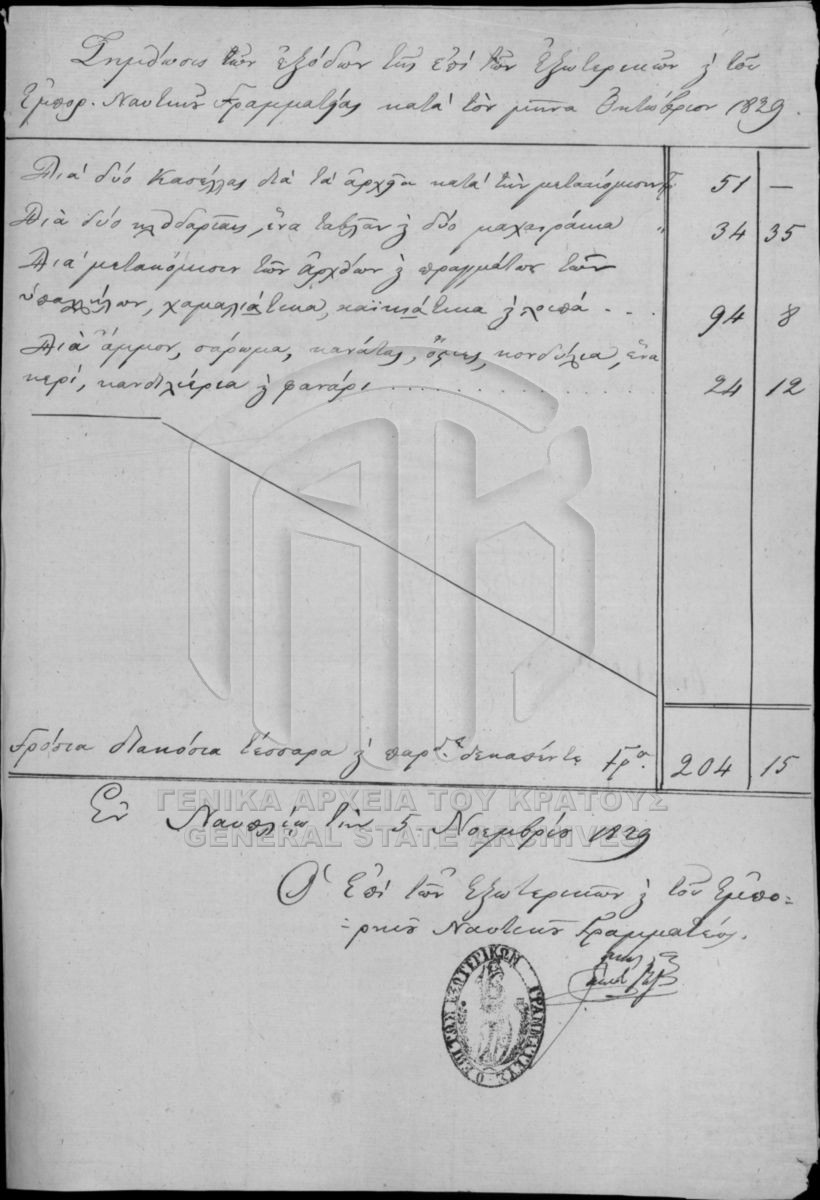 Σημείωσις τῶν ἐξόδων τῆς ἐπὶ τῶν Ἐξωτερικῶν ϗ τοῦ
Ἐμπορ. Ναυτικοῦ Γραμματείας κατὰ τὸν μῆνα Ὀκτώβριον 1829.
Διὰ δύο κασέλλας διὰ τὰ ἀρχεῖα κατὰ τὴν μετακόμισιν 51 —
Διὰ δύο κλειδαρίαις, ἕνα ταβλᾶν ϗ δύο μαχαιράκια " 34 35
Διὰ μετακόμισιν τῶν ἀρχείων ϗ πραγμάτων τῶν
ὑπαλλήλων, χαμαλιάτικα, καϊκιάτικα ϗ λοιπά . . . 94 8
Διὰ ἄμμον, σάρωμα, κανάτας, κονδύλια, ἕνα
κερί, καντιλιέρια ϗ φανάρι . . . . . . . . . . 24 12
Γρόσια διακόσια τέσσαρα ϗ παρ δεκαπέντε Γρ. 204 15
ΓΕΝΙΚΑ ΑΡΧΕΙΑ ΤΟΥ ΚΡΑΤΟΥΣ
GENERAL STATE ARCHIVES
Ἐν Ναυπλίῳ τὴν 5 Νοεμβρίου 1829
Ὁ Ἐπὶ τῶν Ἐξωτερικῶν ϗ τοῦ Ἐμπο=
=ρικοῦ Ναυτικοῦ Γραμματεύς.
Ο ΕΠΙ ΤΩΝ ΕΞΩΤΕΡΙΚΩΝ ΓΡΑΜΜΑΤΕΥΣ